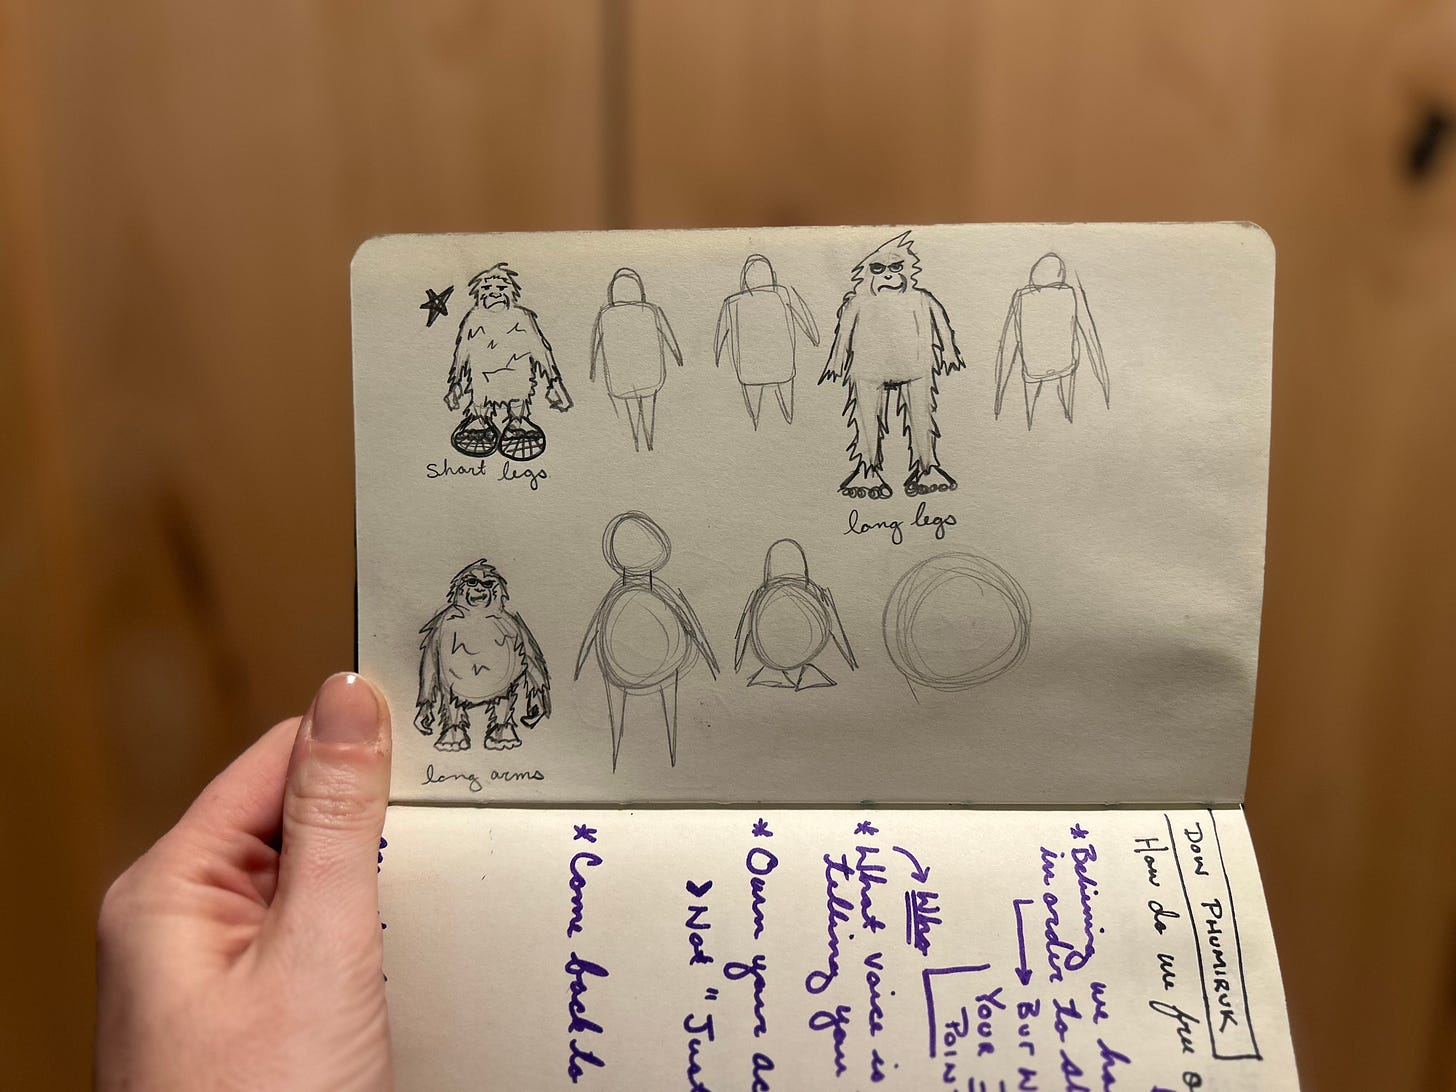 Short legs
long legs
long arms
DOW PHUMIRUK
How do we free
* Believing we
in order to
BUT
YOUR
* What voice is
telling you
Who
* Own your
> Not "Just
* Come back to